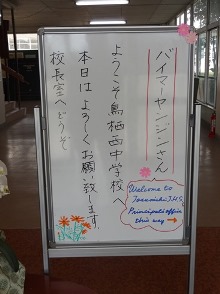 バイマーヤンジンさん
ようこそ鳥栖西中学校へ
本日はよろしくお願い致します。
校長室へどうぞ
Welcome to
Tosunishi J.H.S.
Principal's office
this way →